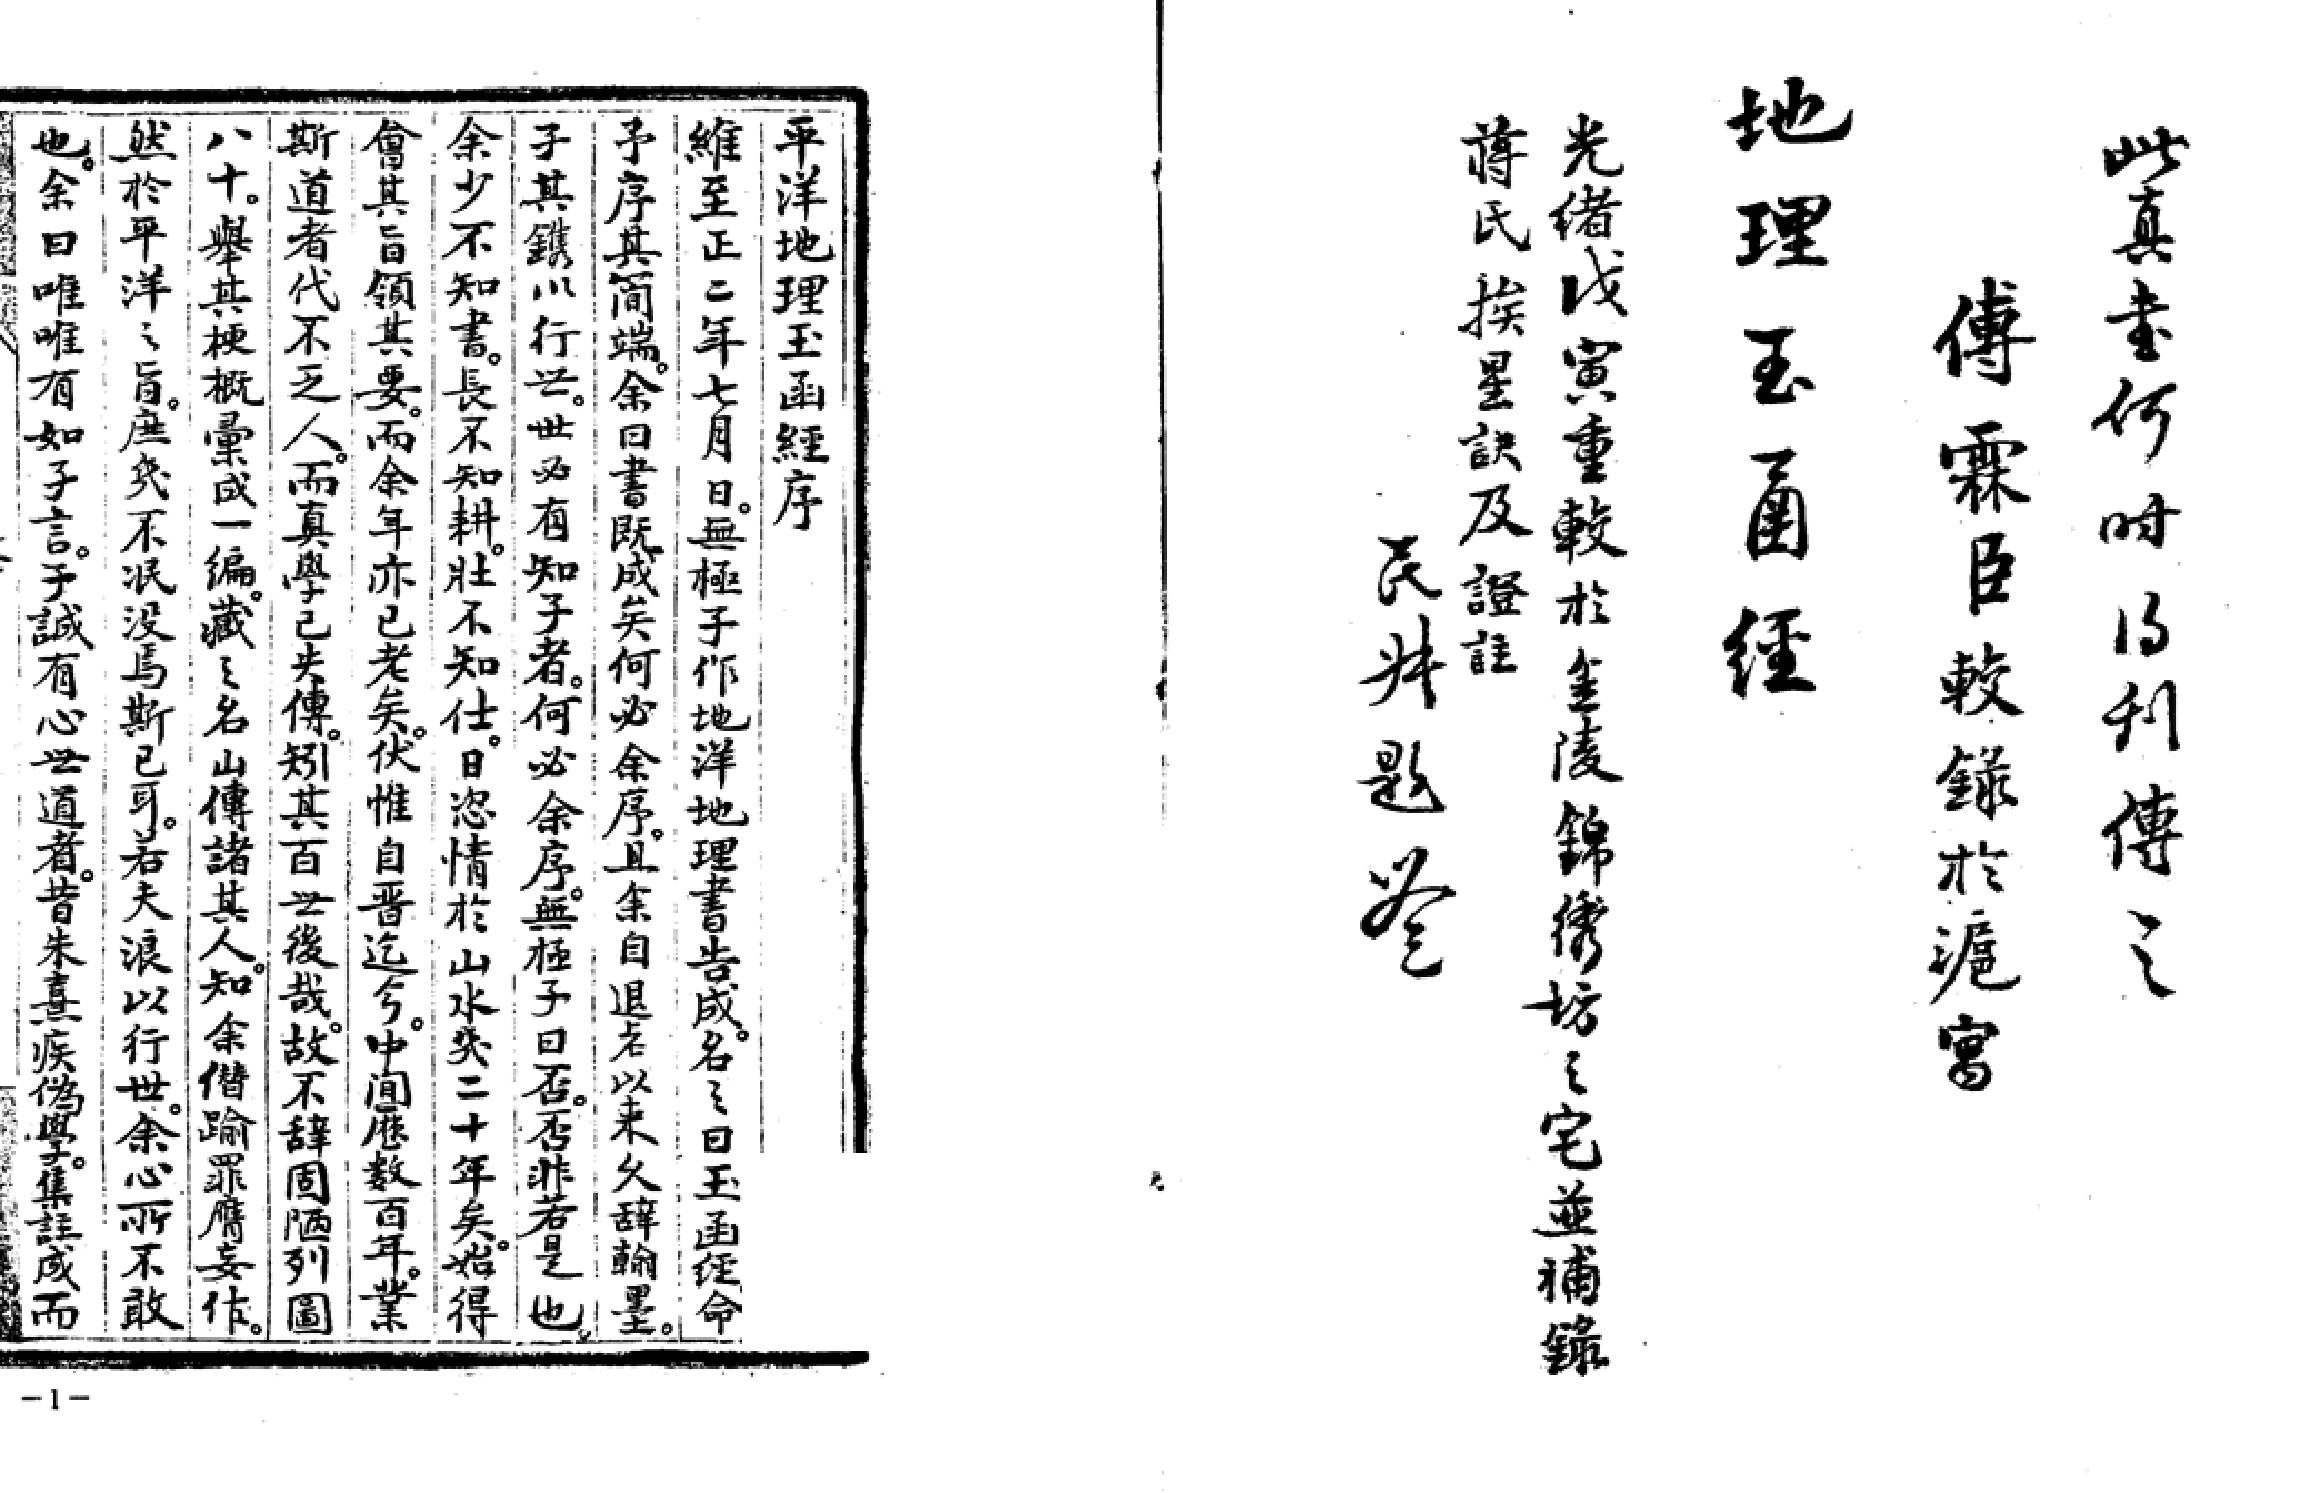 此真書何時得刊傳之
傅霖臣較錄於滬寓
地理玉函經
光緒戊寅重較於金陵錦衛坊之宅並補錄
蔣氏挨星訣及證註
民題簽
平洋地理玉函經序
維至正二年七月日。無極子作地洋地理書告成。名之曰玉函經命
予序其簡端。余曰書既成矣何必余序。且余自退老以来久辞翰墨。
子其鐫以行世。世必有知子者。何必余序。無極子曰否。否非若是也。
余少不知書。長不知耕。壯不知仕。日恣情於山水癸二十年矣。始得
會其旨領其要。而余年亦已老矣。伏惟自晋迄今。中间歷数百年。業
斯道者代不乏人。而真學已失傳。矧其百世後哉。故不辞固陋列圖
八十。舉其梗概彙成一編。藏之名山傳諸其人。知余僭踰罪膺妄作。
然於平洋之旨。庶幾不泯没焉斯已耳。若夫浪以行世。余心所不敢
也。余曰唯唯有如子言。予誠有心世道者。昔朱熹疾偽學。集註成而
-1-